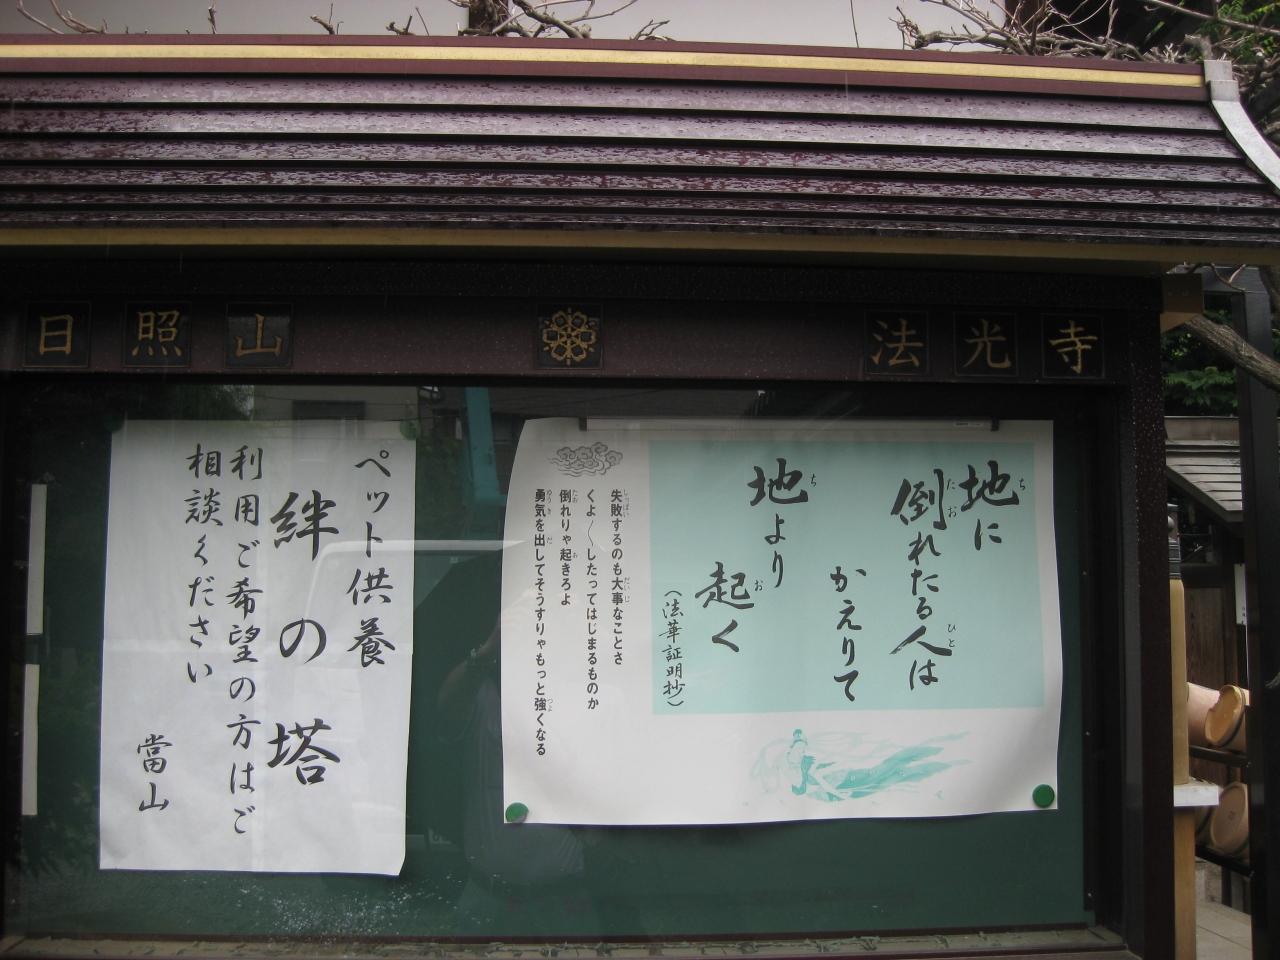 日照山
法光寺
地に
倒れたる人は
かえりて
地より
起く
(法華証明抄)
失敗するのも大事なことさ
くよ〱したってはじまるものか
倒れりゃ起きろよ
勇気を出してそうすりゃもっと強くなる
ペット供養
絆の塔
利用ご希望の方はご
相談ください
當山